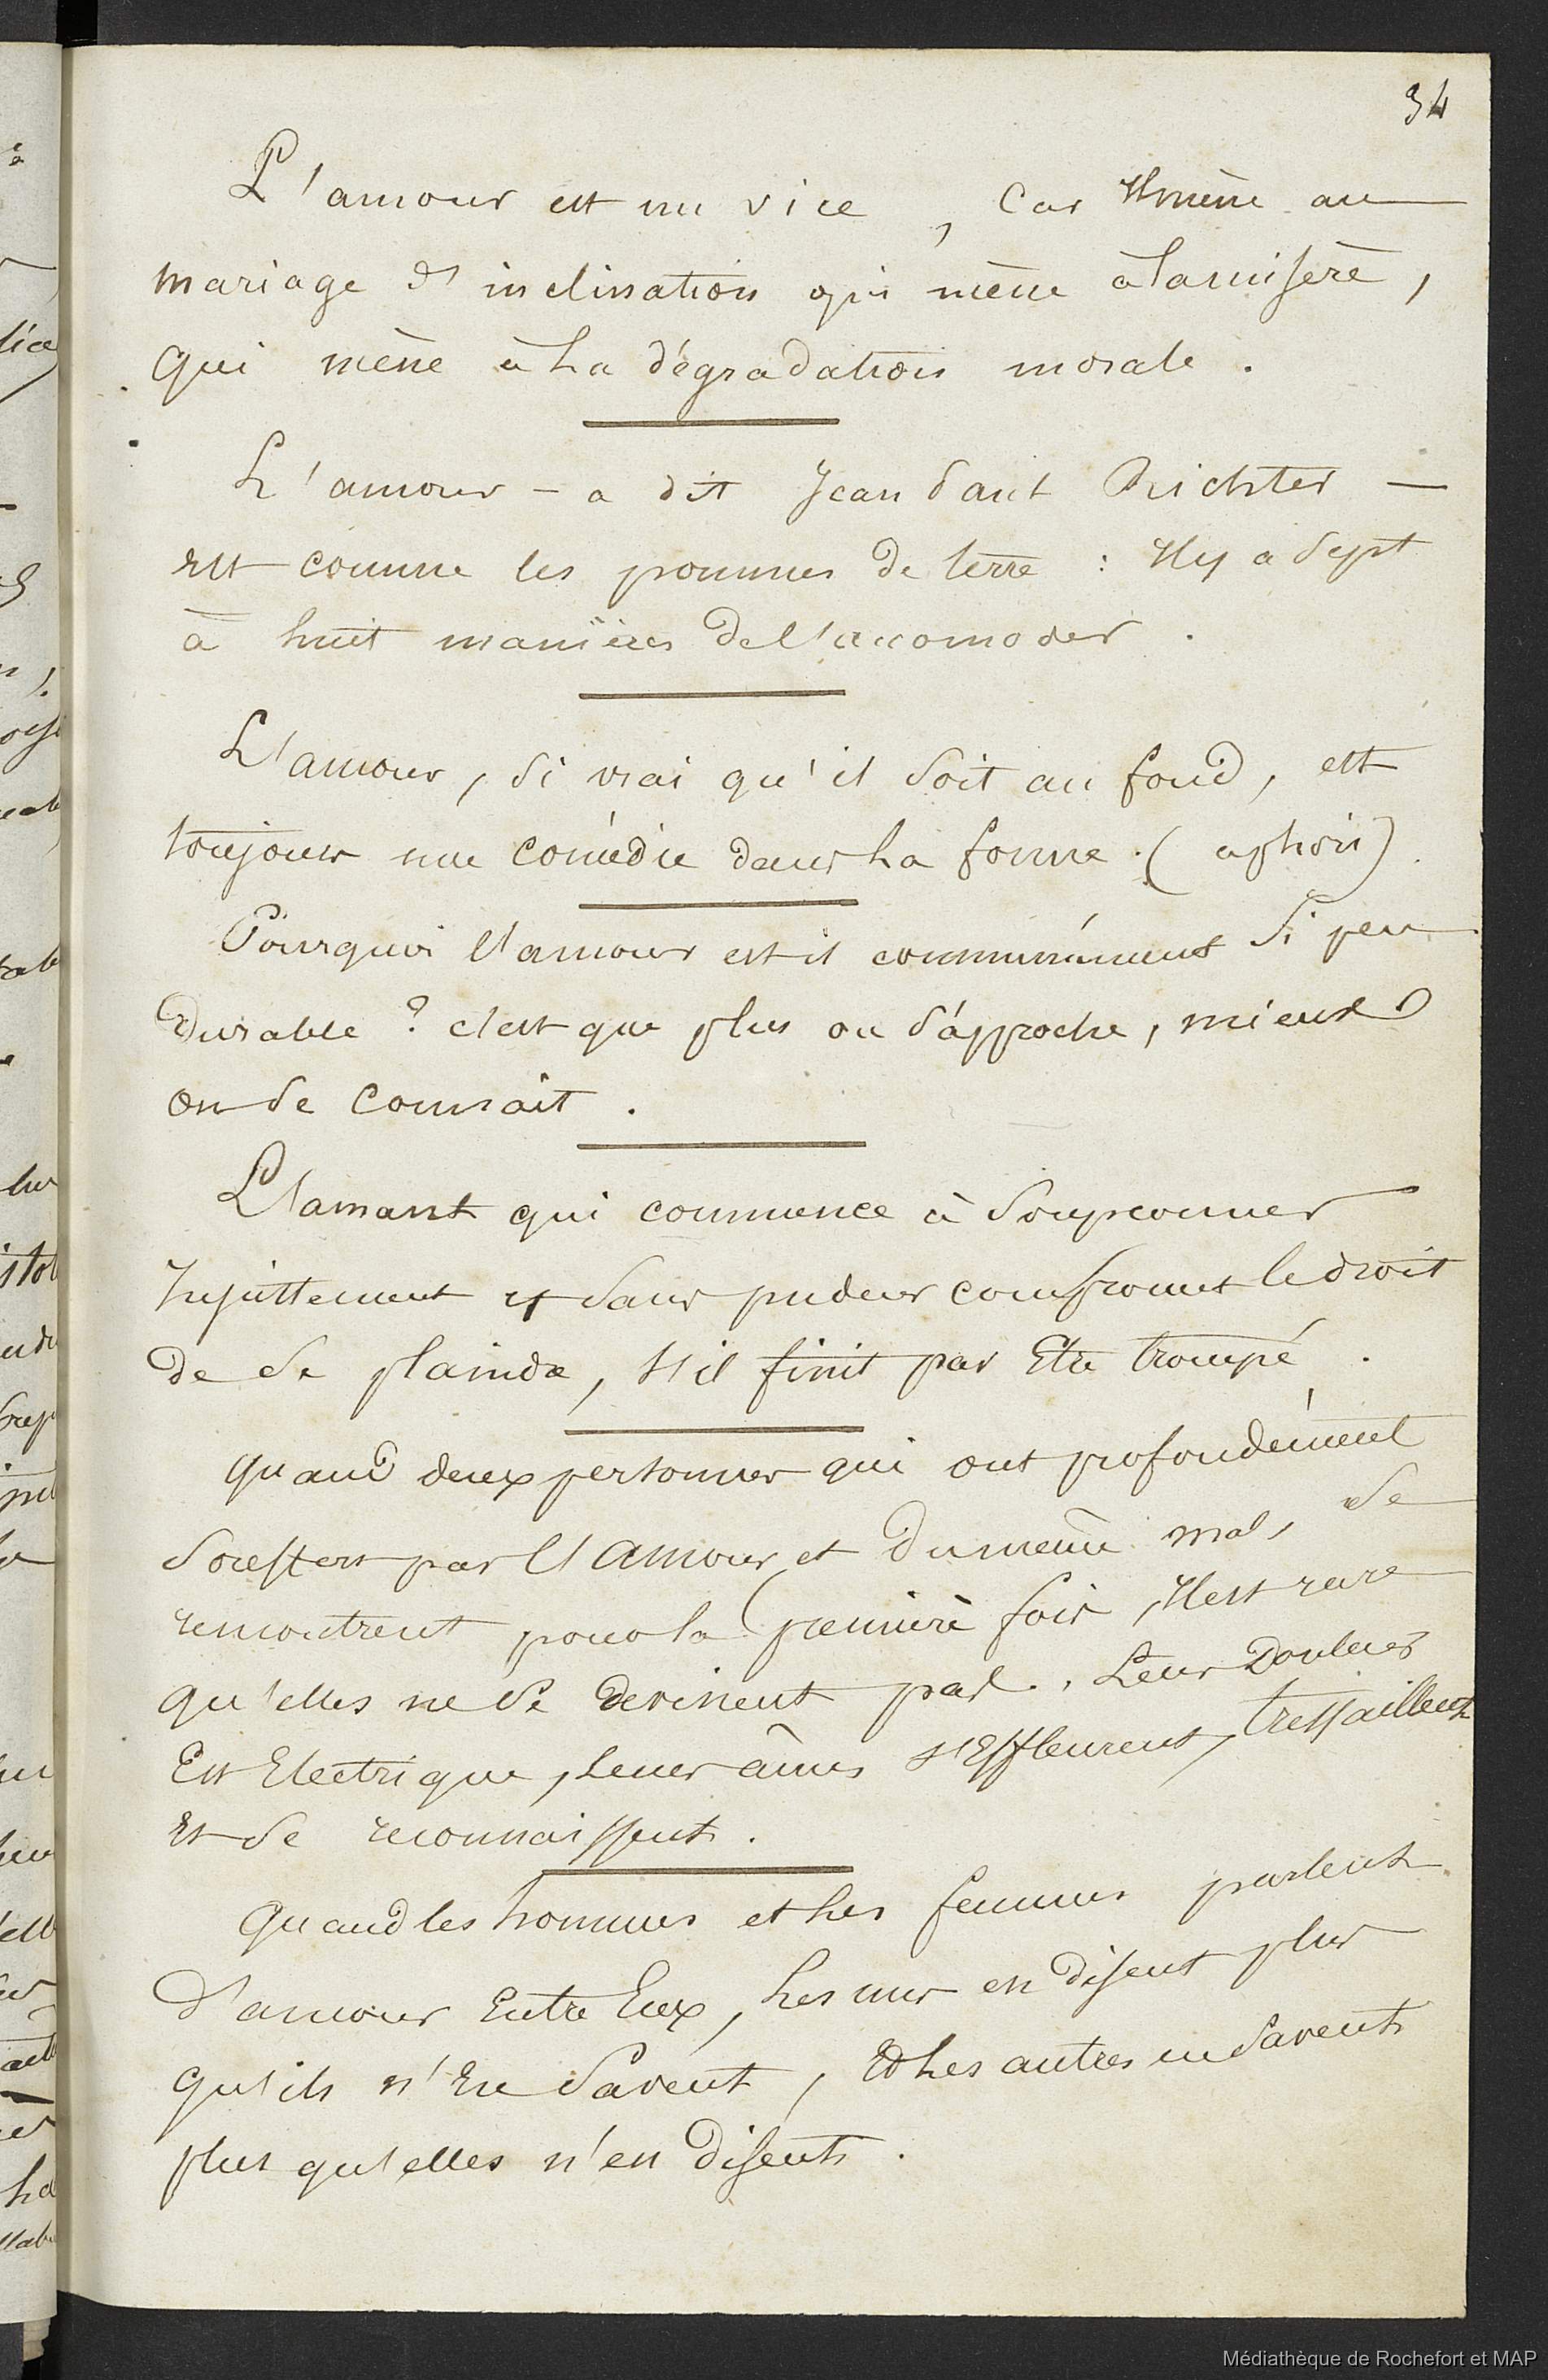 34
L'amour est un vice, car il mène au
mariage d'inclination qui mène à la misère,
qui mène à la dégradation morale.
L'amour - a dit Jean Paul Richter -
est comme les pommes de terre : Il y a sept
à huit manières de l'accomoder.
L'amour, si vrai qu'il soit au fond, est
toujours une comédie dans la forme. (aphori)
Pourquoi l'amour est il communément si peu
durable ? c'est que plus on s'approche, mieux
on se connait.
L'amant qui commence à soupconner
Injustement et sans pudeur compromet le droit
de se plaindre, s'il finit par Etre trompé.
quand deux personnes qui ont profondément
souffert par l'amour et du même mal, se
rencontrent pour la première fois, Il est rare
qu'elles ne se devinent pas. Leur Douleur
Est Electrique, leurs âmes s'Effleurent, tressaillent
Et se reconnaissent.
Quand les hommes et les femmes parlent
d'amour Entre Eux, les uns en disent plus
qu'ils n'En savent, Et les autres en savent
plus qu'elles n'en disent.
lice
Médiathèque de Rochefort et MAP